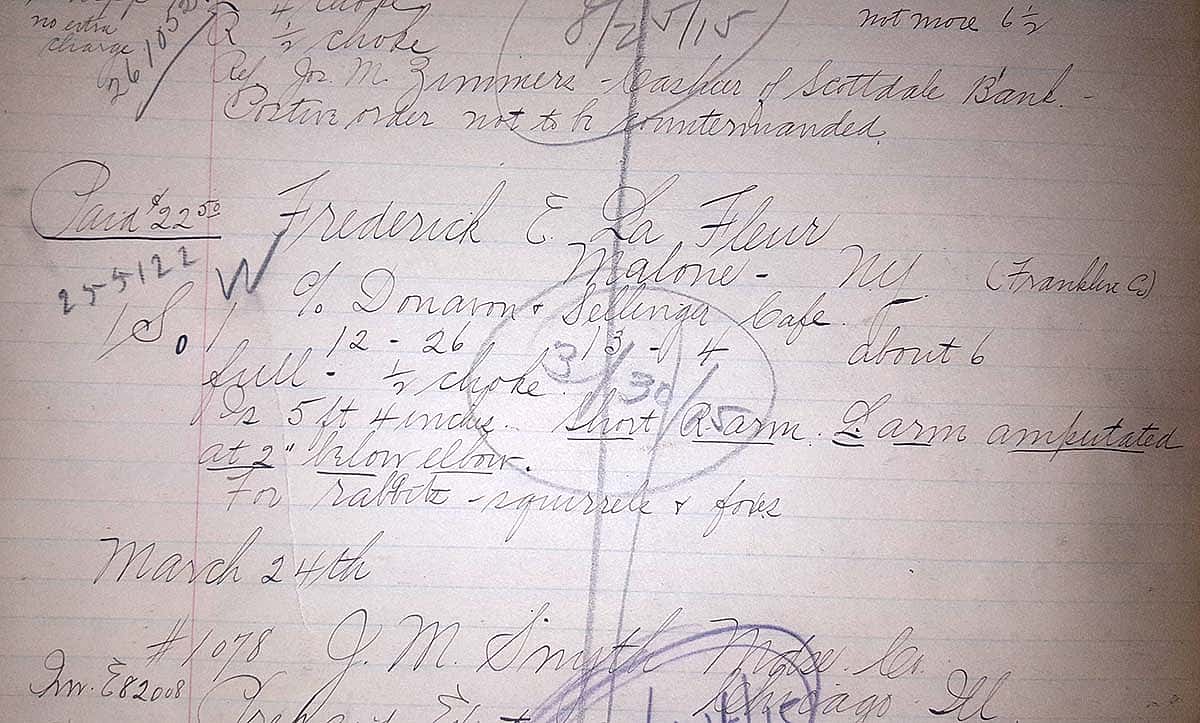 4 choke
8/25/15
not more 6 1/2
no extra
charge
26105
R 1/2 choke
Ref Jos. M. Zimmers - Cashier of Scottdale Bank. -
Postive order not to be countermanded.
Paid $22 50
Frederick E. La Fleur
Malone - NY. (Franklin Co)
255122
W
% Donavon & Sellinga Cafe.
1 S. 0 1
12 - 26 13 - 4 about 6
full - 1/2 choke
3/30/15
Is 5 ft 4 inches. Short R arm. L. arm amputated
at 2" below elbow.
For rabbits - squirrels & foxes
March 24th
#1078 J. M. Smyth Mdse. Co.
Inv. E82008
Chicago Ill